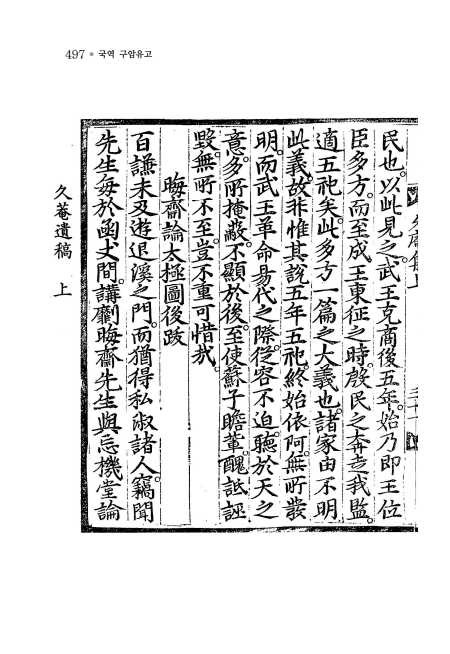 497 • 국역 구암유고
民也。以此見之。武王克商後五年。始乃即王位
臣多方。而至成王東征之時。殷民之奔走我監。
適五祀矣。此多方一篇之大義也。諸家由不明
此義。故非惟其說五年五祀。終始依阿。無所發
明。而武王革命易代之際。從容不迫。聽於天之
意。多所掩蔽。不顯於後。至使蘇子瞻輩。醜詆誣
毀。無所不至。豈不重可惜哉。
晦齋論太極圖後跋
百謙未及遊退溪之門。而猶得私淑諸人。竊聞
先生每於函丈間。講劘晦齋先生與忘機堂論
久菴遺稿 上